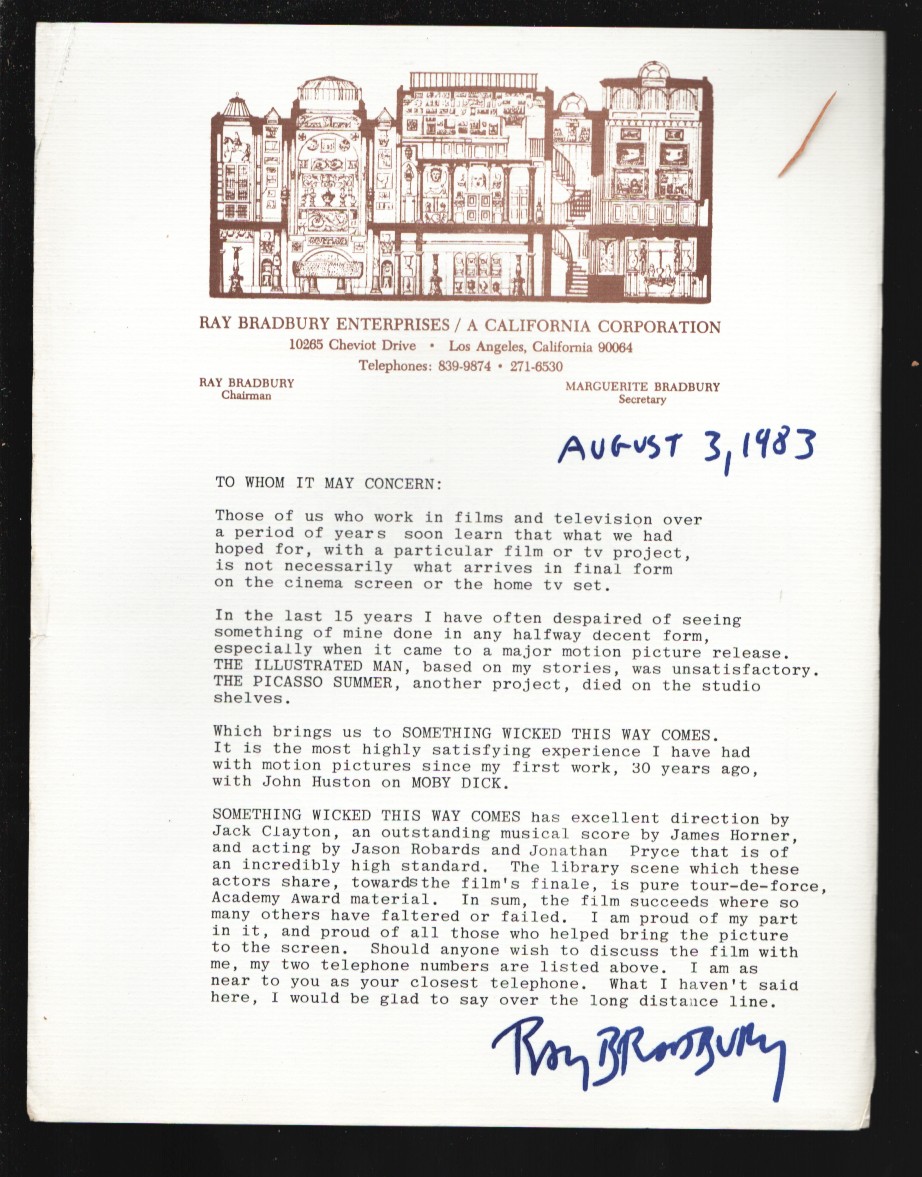 RAY BRADBURY ENTERPRISES / A CALIFORNIA CORPORATION
10265 Cheviot Drive • Los Angeles, California 90064
Telephones: 839-9874 • 271-6530
RAY BRADBURY
Chairman
MARGUERITE BRADBURY
Secretary
AUGUST 3, 1983
TO WHOM IT MAY CONCERN:
Those of us who work in films and television over
a period of years soon learn that what we had
hoped for, with a particular film or tv project,
is not necessarily what arrives in final form
on the cinema screen or the home tv set.
In the last 15 years I have often despaired of seeing
something of mine done in any halfway decent form,
especially when it came to a major motion picture release.
THE ILLUSTRATED MAN, based on my stories, was unsatisfactory.
THE PICASSO SUMMER, another project, died on the studio
shelves.
Which brings us to SOMETHING WICKED THIS WAY COMES.
It is the most highly satisfying experience I have had
with motion pictures since my first work, 30 years ago,
with John Huston on MOBY DICK.
SOMETHING WICKED THIS WAY COMES has excellent direction by
Jack Clayton, an outstanding musical score by James Horner,
and acting by Jason Robards and Jonathan Pryce that is of
an incredibly high standard. The library scene which these
actors share, towards the film's finale, is pure tour-de-force,
Academy Award material. In sum, the film succeeds where so
many others have faltered or failed. I am proud of my part
in it, and proud of all those who helped bring the picture
to the screen. Should anyone wish to discuss the film with
me, my two telephone numbers are listed above. I am as
near to you as your closest telephone. What I haven't said
here, I would be glad to say over the long distance line.
RAY BRADBURY